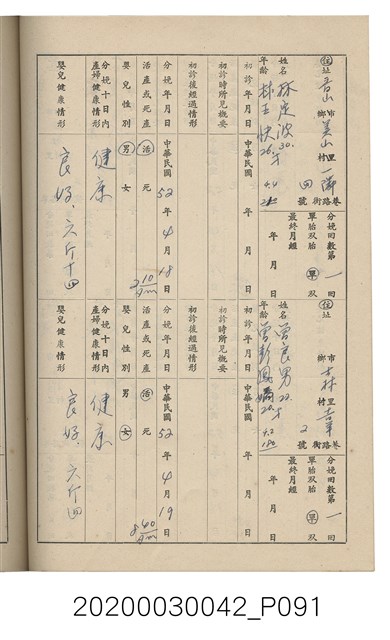 住址 鄉市 美山 村里 一鄰 四號 街路巷
姓名 林定波 30
年齡 林王快 26才
分娩回數第一回
單胎双胎 單 双
最終月經 年 月 日
初診年月日 年 月 日
初診時所見概要
初診後經過情形
分娩年月日 中華民國52年4月18日
活產或死產 活 死
嬰兒性別 男 女
分娩十日內產婦健康情形 健康
嬰兒健康情形 良好,六斤十四
住址 鄉市 士林 村里 2號 街路巷
姓名 曾良男 22
年齡 曾彭鳳嬌 20才
分娩回數第一回
單胎双胎 單 双
最終月經 年 月 日
初診年月日 年 月 日
初診時所見概要
初診後經過情形
分娩年月日 中華民國52年4月19日
活產或死產 活 死
嬰兒性別 男 女
分娩十日內產婦健康情形 健康
嬰兒健康情形 良好,六斤四
20200030042_P091